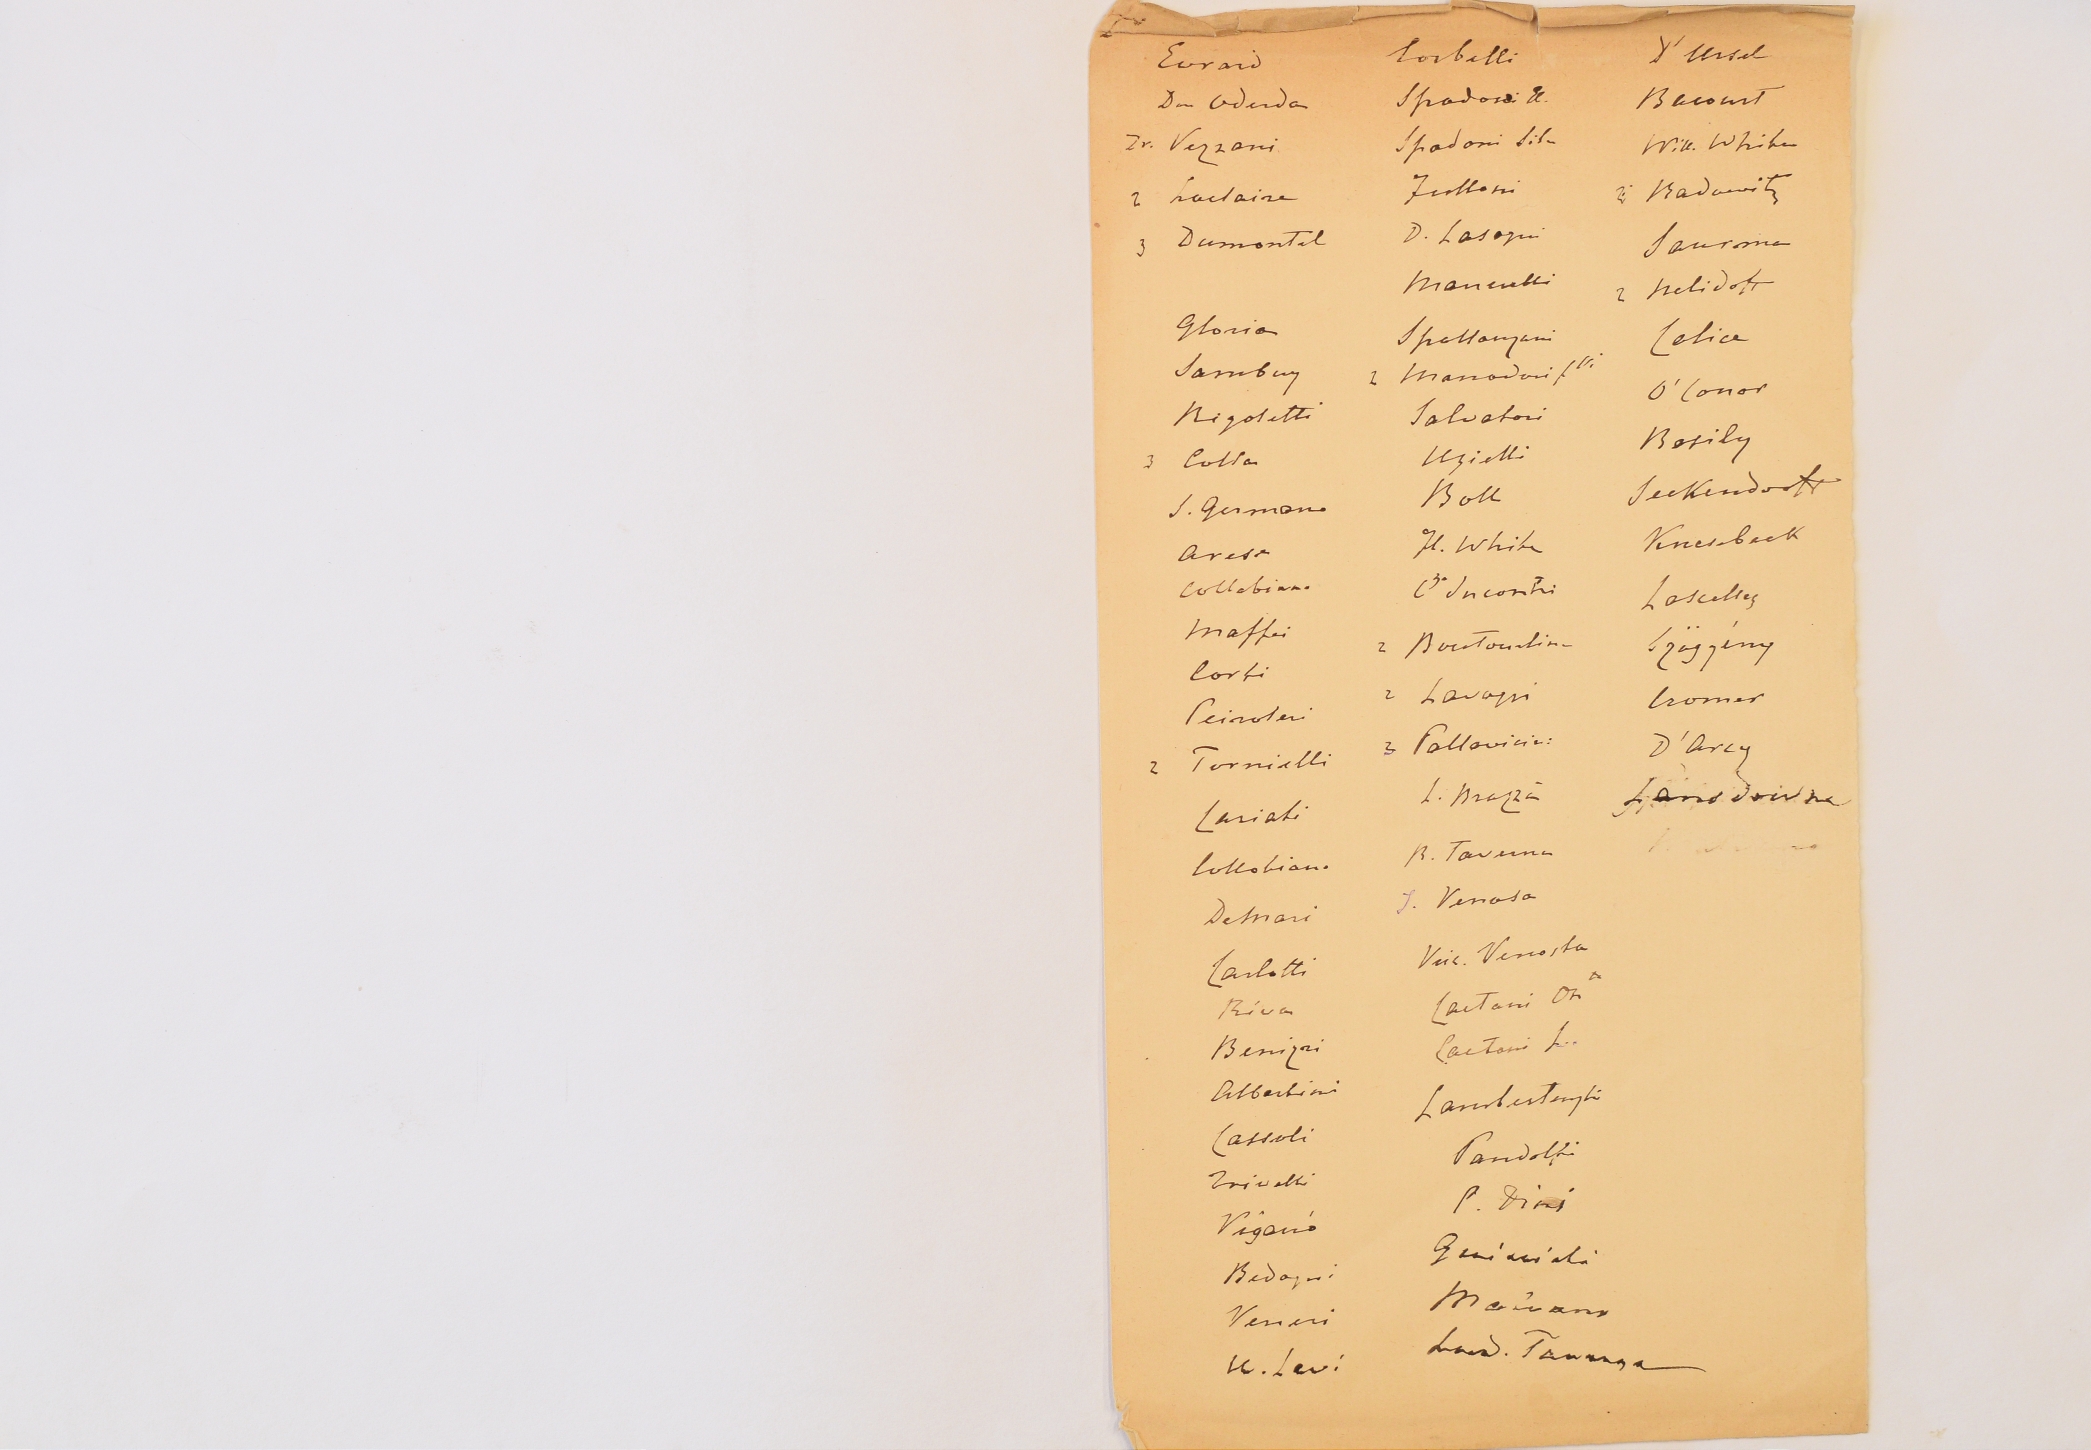 Evrard
Don Oderda
Dr. Vezzani
2 Laclaire
3 Dumontel
Gloria
Sambuy
Rigoletti
3 Colla
S. Germano
Aresa
Collobiano
Maffei
Corti
Peiroleri
2 Tornielli
Cariati
Collobiano
DeMari
Carlotti
Riva
Benizzi
Albertini
Cassoli
Trivelli
Viganò
Bedogni
Veneri
U. Levi
Corbelli
Spadoni
Spadoni
D. Lasagni
Manenti
Spallanzani
2 Manodori
Salvatori
Uzielli
Boll
H. White
Incontri
2 Boutourline
2 Lavaggi
3 Pallavicini
L. Brazzà
R. Taverna
S. Venosa
Visc. Venosta
Caetani
Caetani L.
Lambertenghi
Pandolfi
P. Dini
Malvano
Lod. Taverna
D'Ursel
Bacourt
Will. White
2 Radowitz
Saurma
2 Nelidoff
Calice
O'Conor
Basily
Seckendorff
Knesebeck
Lascelles
Szögyény
Cromer
D'Arcy
Lansdowne